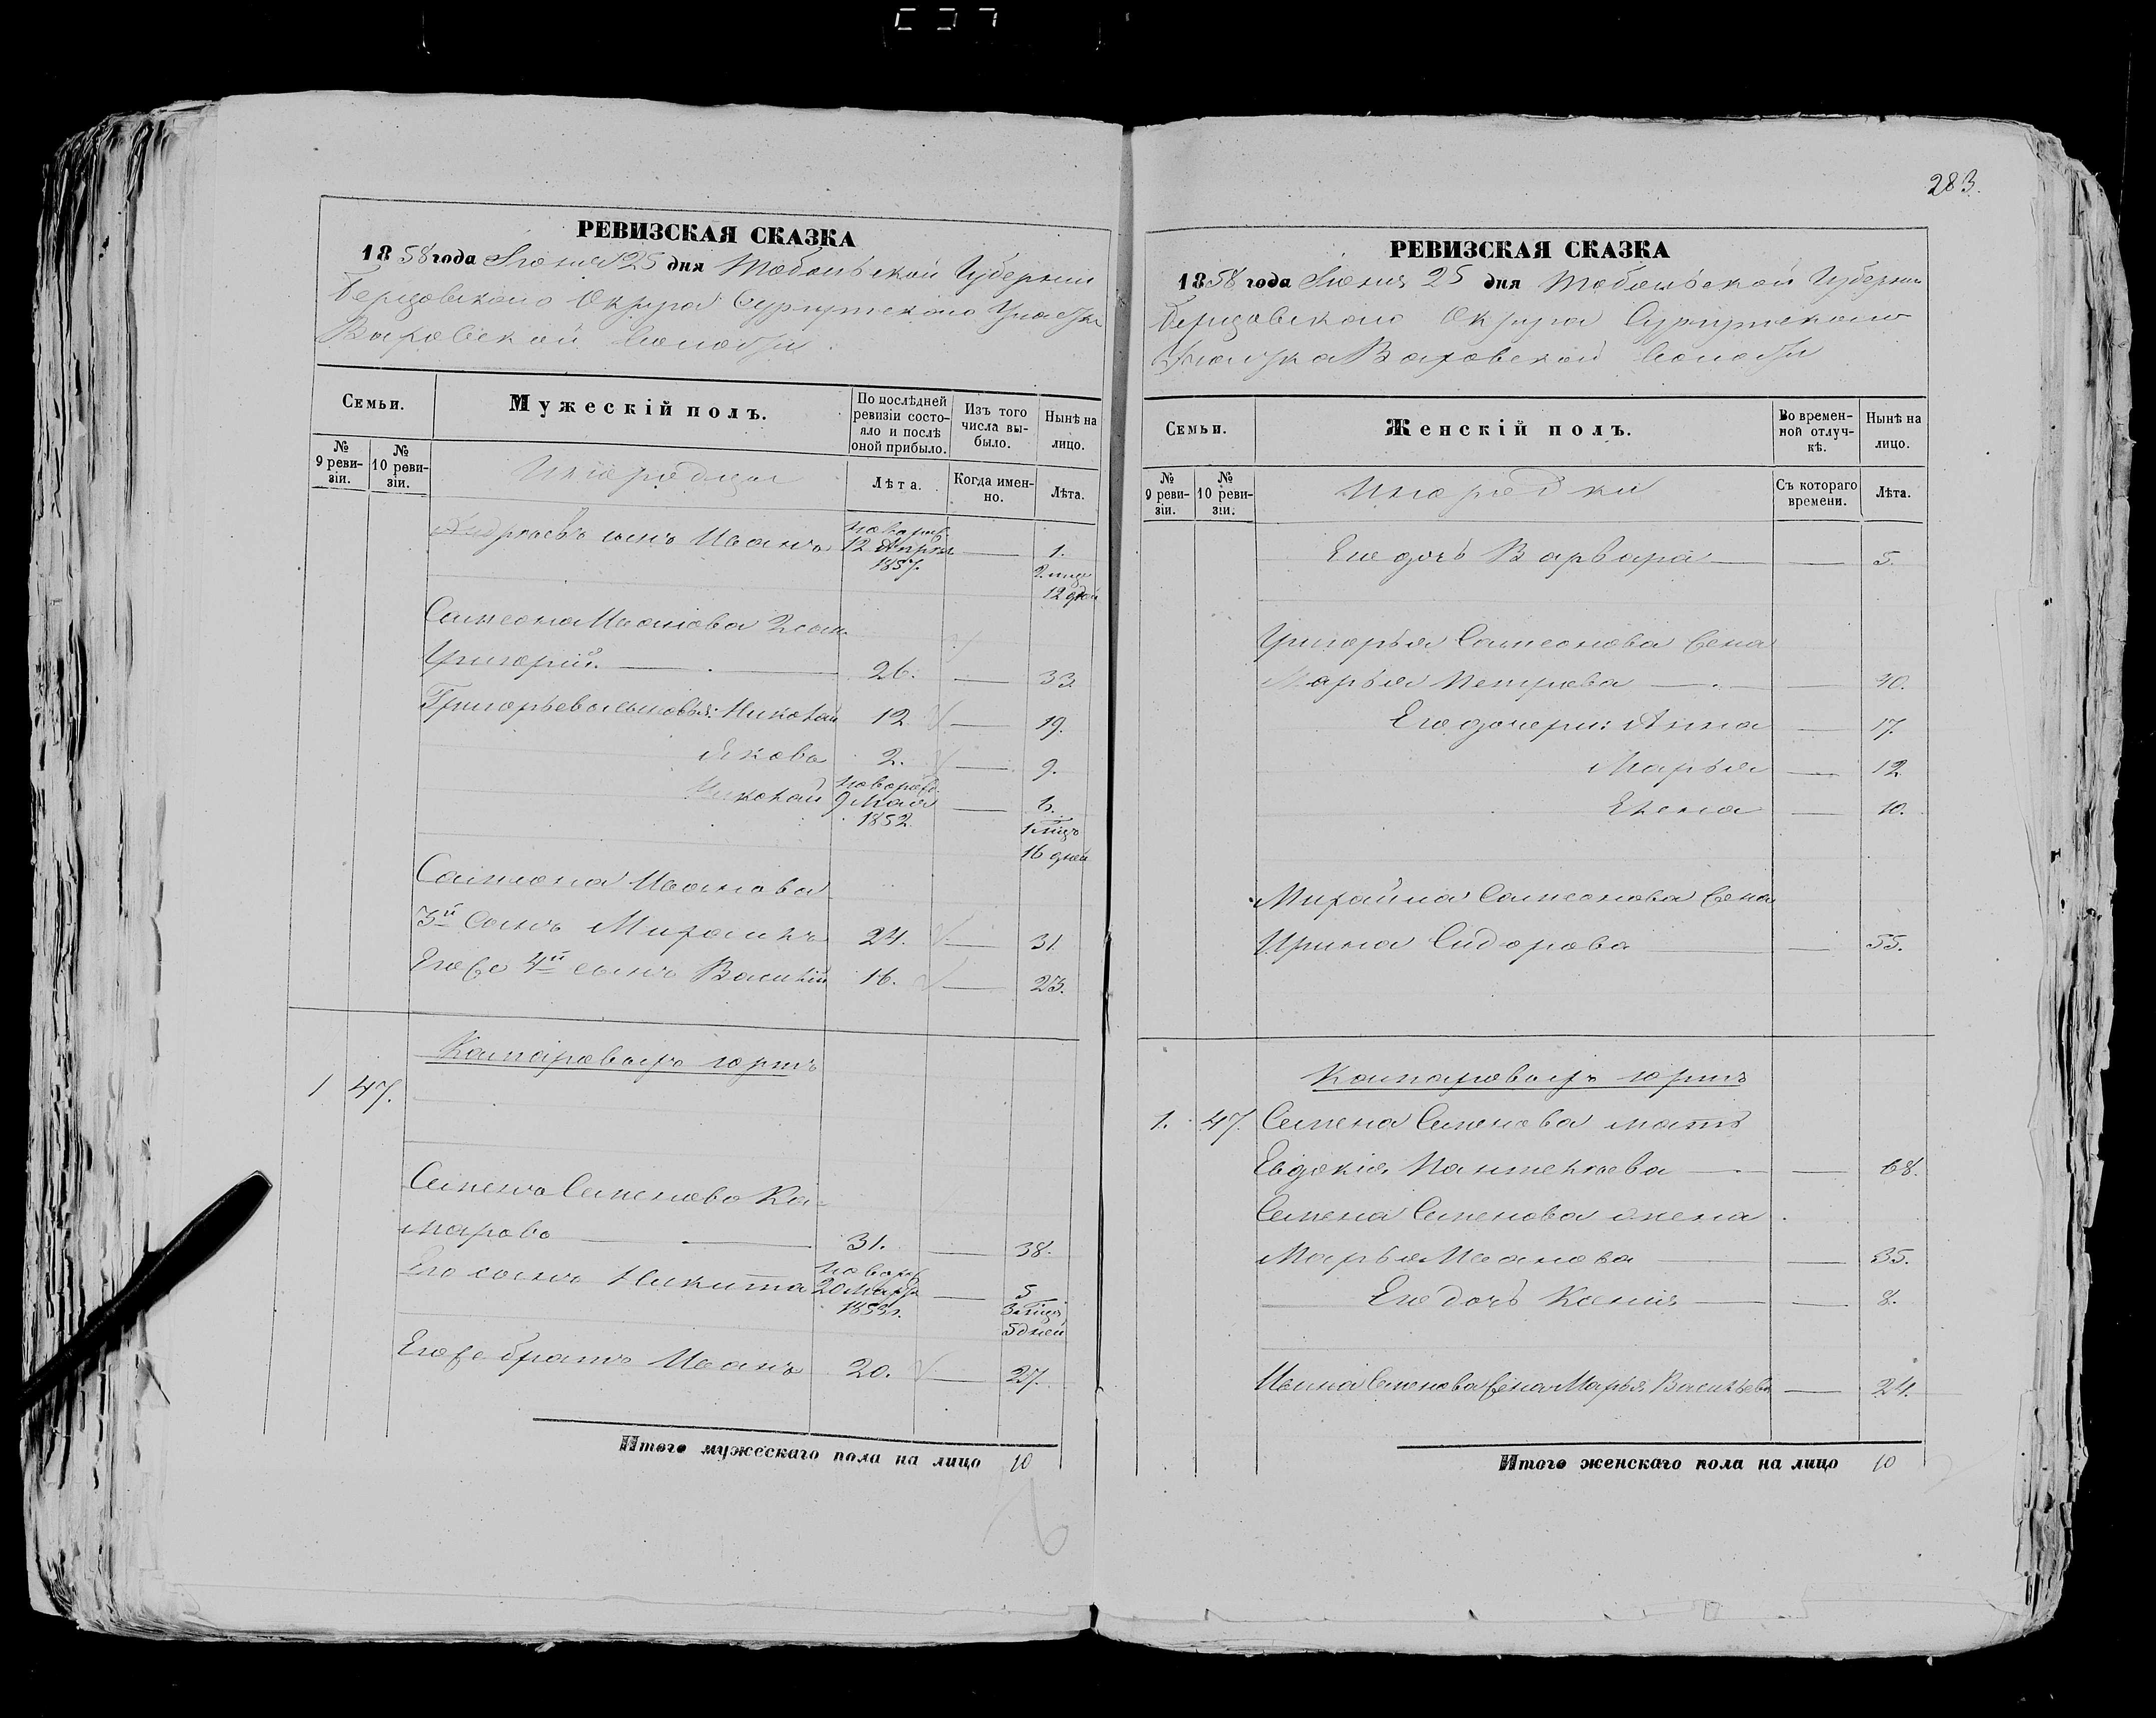 283.
РЕВИЗСКАЯ СКАЗКА
1858 года Іюня 25 дня Тобольской Губерніи
Березовскаго Округа Сургутскаго Участка
Ваховской волости
Семьи.
Мужескій полъ.
По послѣдней ревизіи состояло и послѣ оной прибыло.
Изъ того числа выбыло.
Нынѣ на лицо.
№ 9 ревизіи.
№ 10 ревизіи.
Инородцы
Лѣта.
Когда именно.
Лѣта.
Андреевъ сынъ Иванъ новорож. 12 Апрѣл 1857. — 1. 2. мца 12 дней
Самсона Иванова 2 сын.
Григорій. — 26. — 33.
Григорьева сыновья: Николай 12 — 19.
Яковъ 2. — 9.
Николай новорожд. 9 Мая 1852. — 6. 1 мцъ 16 дней
Самсона Иванова
3й сынъ Михаилъ 24. — 31.
Его же 4й сынъ Василій 16. — 23.
юртъ
1 47.
Семенъ Семеновъ Ка-
маровъ — 31. — 38.
Его сынъ Никита новорож 20 Марта 1853 г. — 5 3 мца 5 дней
Его же братъ Иванъ 20. — 27.
Итого мужескаго пола на лицо 10
РЕВИЗСКАЯ СКАЗКА
1858 года Іюня 25 дня Тобольской Губерніи
Березовскаго Округа Сургутскаго
Участка Ваховской волости
Семьи.
Женскій полъ.
Во временной отлучкѣ.
Нынѣ на лицо.
№ 9 ревизіи.
№ 10 ревизіи.
Инородки
Съ котораго времени.
Лѣта.
Его дочь Варвара — — 5.
Григорья Самсонова жена
Марья Петрова — — 40.
Его дочери: Анна — 17.
Марья — 12
Елена — 10.
Михайла Самсонова жена
Ирина Сидорова — 55.
юртъ
1. 47. Семена Семенова мать
Евдокія Пантелѣева — — 68.
Семена Семенова жена
Марья Иванова — — 35.
Его дочь Ксенія — — 8.
Ивана Семенова жена Марья Васильева — 24.
Итого женскаго пола на лицо 10